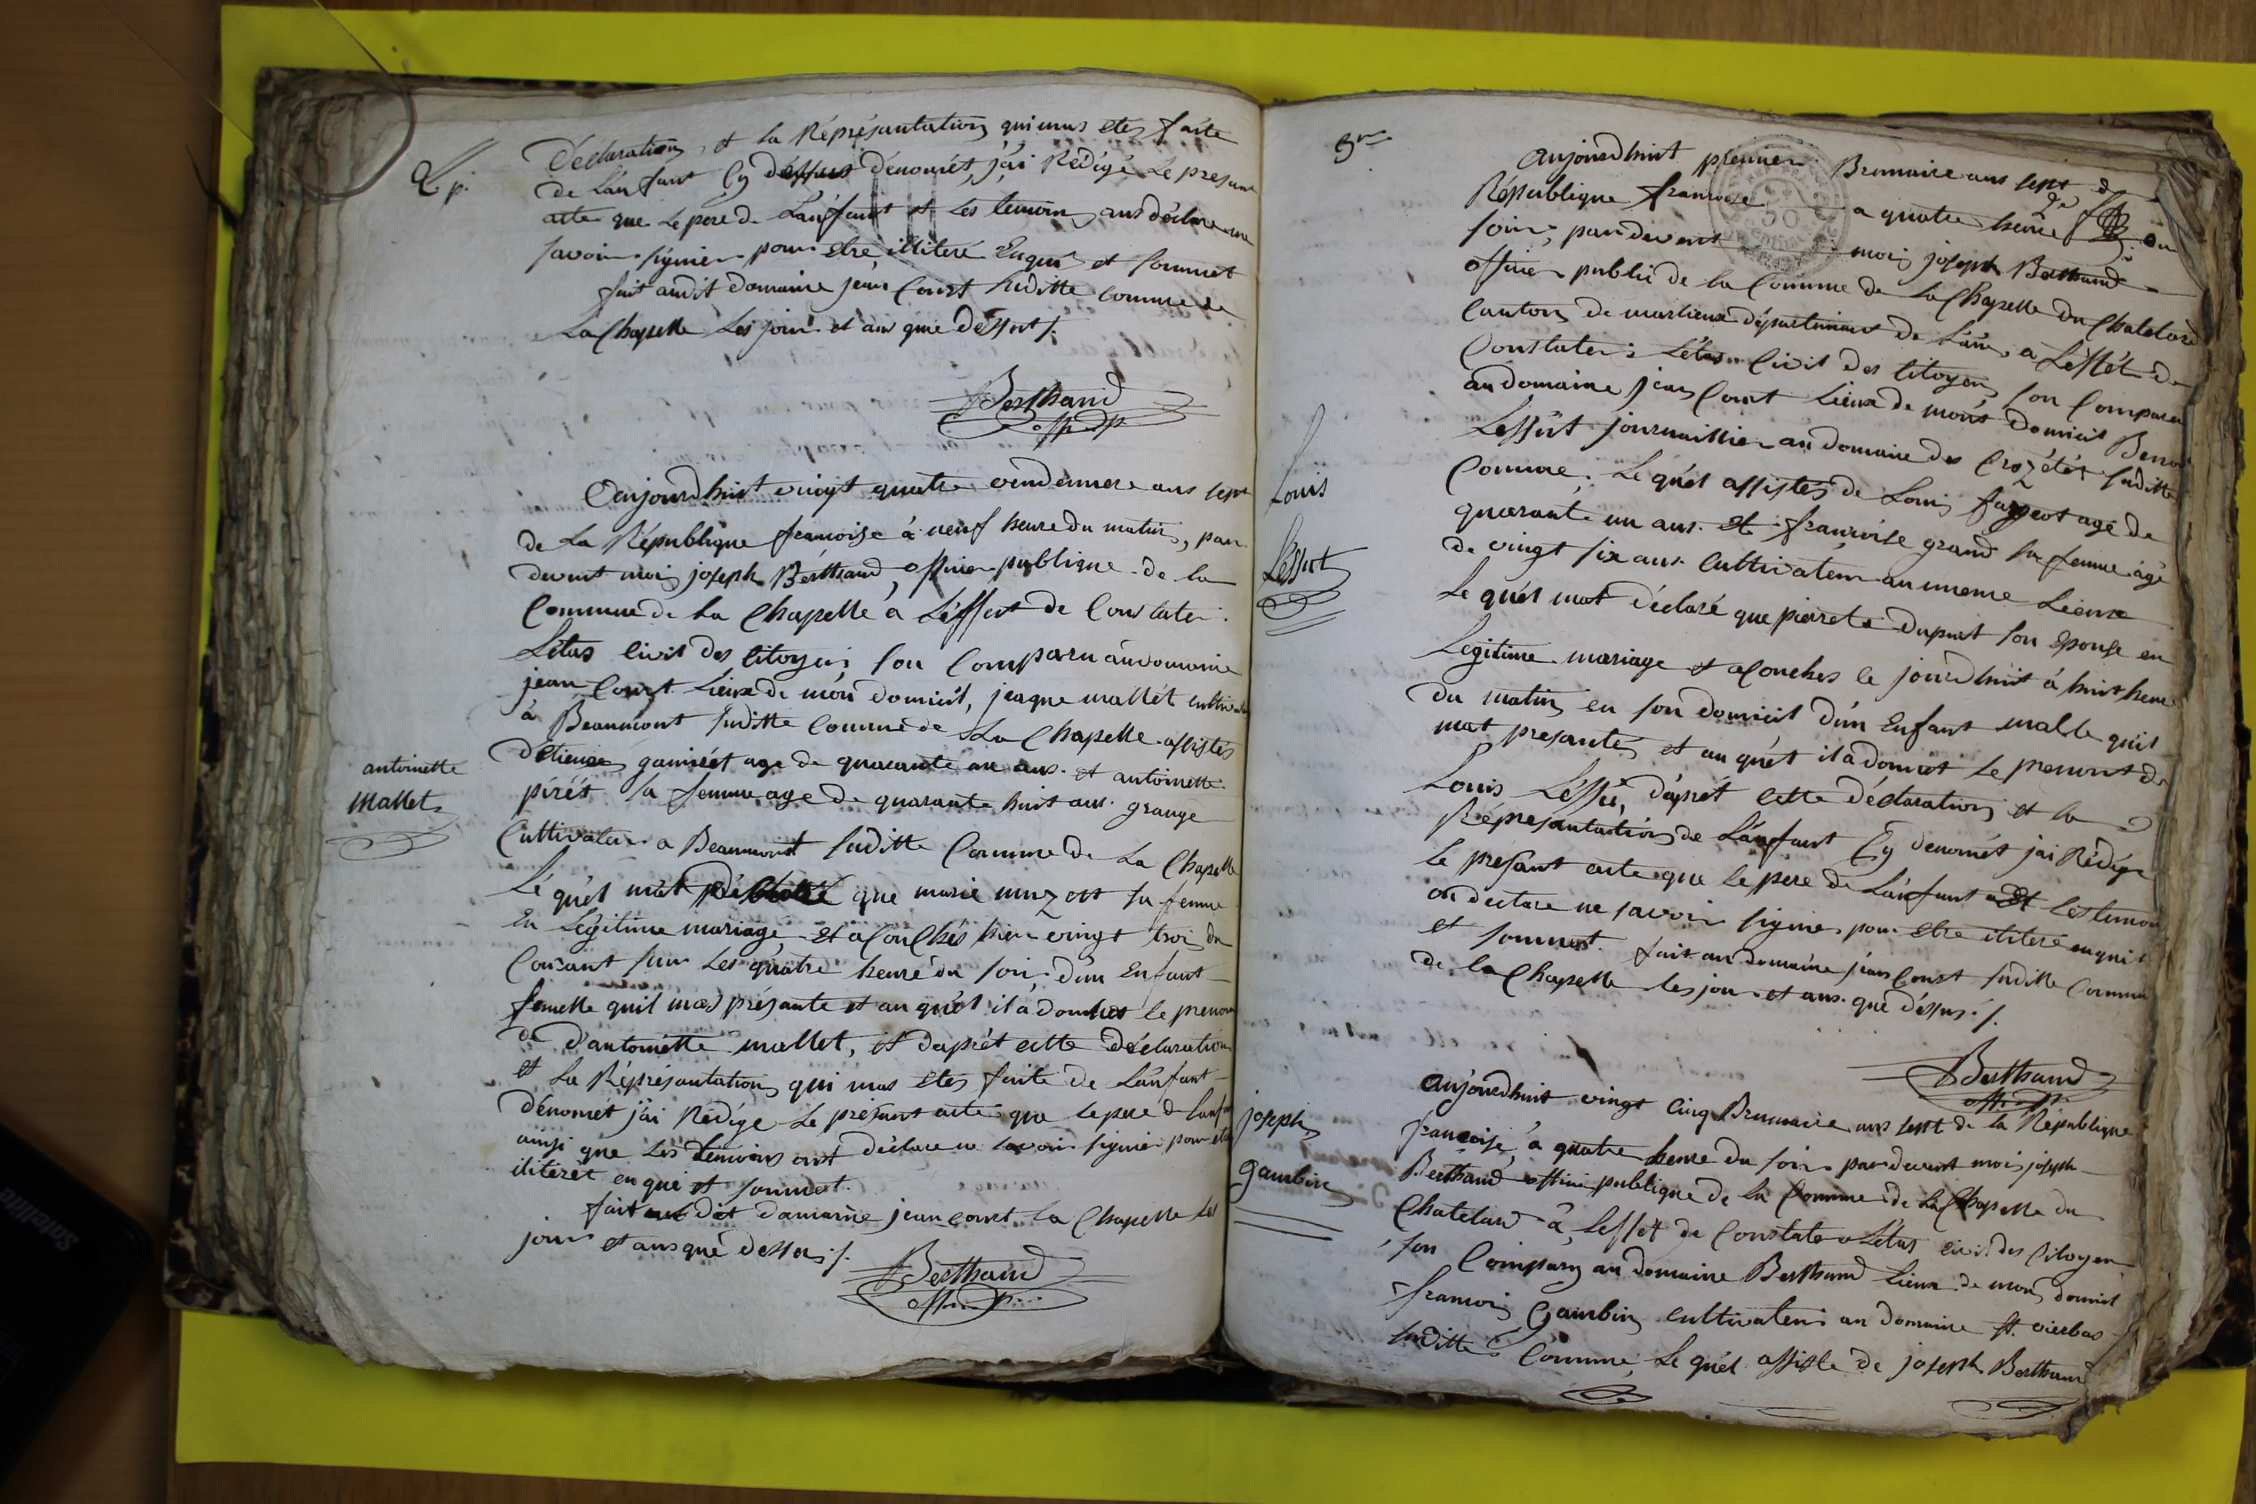 2 p.
Déclaration, et la Réprésantation qui mas etes faite
de L'anfant Cy dessus dénomét, j'ai Rédigé Le presant
acte que Le pere de L'anfant et Les temoin ans déclare ne
savoir signier pour etre illiteré Enquis et sommet
fait audit domaine jean Court suditte commune de
La Chapelle Les jour et ans que dessus /.
Berthand
off p
aujourdhuit vingt quatre vendemere ans sept
de La République francoise à neuf heure du matin, par
devent moi joseph Berthand, officier publique de la
Commune de la Chapelle à L'effet de Constater
L'étas Civis des Citoyen, son Comparu audomaine
jean Court Lieux de mon domicil, jeaque mallét cultivateur
à Beaumont suditte Commune de La Chapelle assistés
d'étienne gamiét age de quarante un ans. et antoinette
pirét sa femme age de quarante huit ans. grangé
Cultivateur a Beaumont suditte Commune de La Chapelle
Lé quél mat déclaré que marie muzett sa femme
En Légitime mariage et acouchés hier vingt trois du
Courant sur Les quatre heure du soir, d'un Enfant
femelle quil mas présante et au quél il à donnét le prenom
de d'antoinétte mallet, et daprét cette déclaration
et La Réprésantation qui mas etes faite de L'anfant
dénomét j'ai Rédigé Le présant acte que le pere de L'anfant
ainsi que Les temoins ont déclare ne savoir signier pour etre
iliterét enqui et sommet.
fait audit domaine jean court La Chapelle Les
jour et ans qué dessus /.
Berthand
off p
antoinette
Mallet
3 p.
aujourdhuit premier Brumaire ans sept de
République francoise a quatre heure du
soir, par devent moi joseph Berthand
officier public de la Commune de La Chapelle du Chatelard
Canton de marlieux département de L'ain, a L'effét de
Constater L'étas Civil des Citoyen, son Comparu
au domaine jean Court Lieux de mont domicil Benoit
Lessut journaillier au domaine des Crozétet suditte
Commune. Le quél assistés de Louis fargeot agé de
quarante un ans. et francoise grand sa femme agé
de vingt six ans. Cultivateur au meme Lieux
Le quél mat déclaré que pierrete dupuit son épouse en
Légitime mariage et acouches ce jourdhuit à huit heure
du matin en son domicil d'un Enfant malle quil
mat presantés, et au quél il à donnet Le prenont de
Louis Léssu, d'aprét cette déclaration et la
Répresantation de L'anfant Cy denomét jai Rédigé
le présant acte que le pere de L'anfant et Les temoin
on declare ne savoir signier pour etre iliteré enquit
et sommet. fait au domaine jean Court suditte Commune
de la Chapelle les jour et ans. que déssus /.
Berthand
off p
Louis
Léssut
aujourdhuit vingt cinq Brumaire ans sept de la République
francoise, à quatre heure du soir par devent moi joseph
Berthand officier publique de la Commune de La Chapelle du
Chatelard à L'effet de Constater L'étas civis des Citoyen
son Compary au domaine Berthand Lieux de mon domicil
francois Gambin cultivateur au domaine st. vierbas
suditte Commune, Le quél assiste de joseph Berthand
joseph
gambin